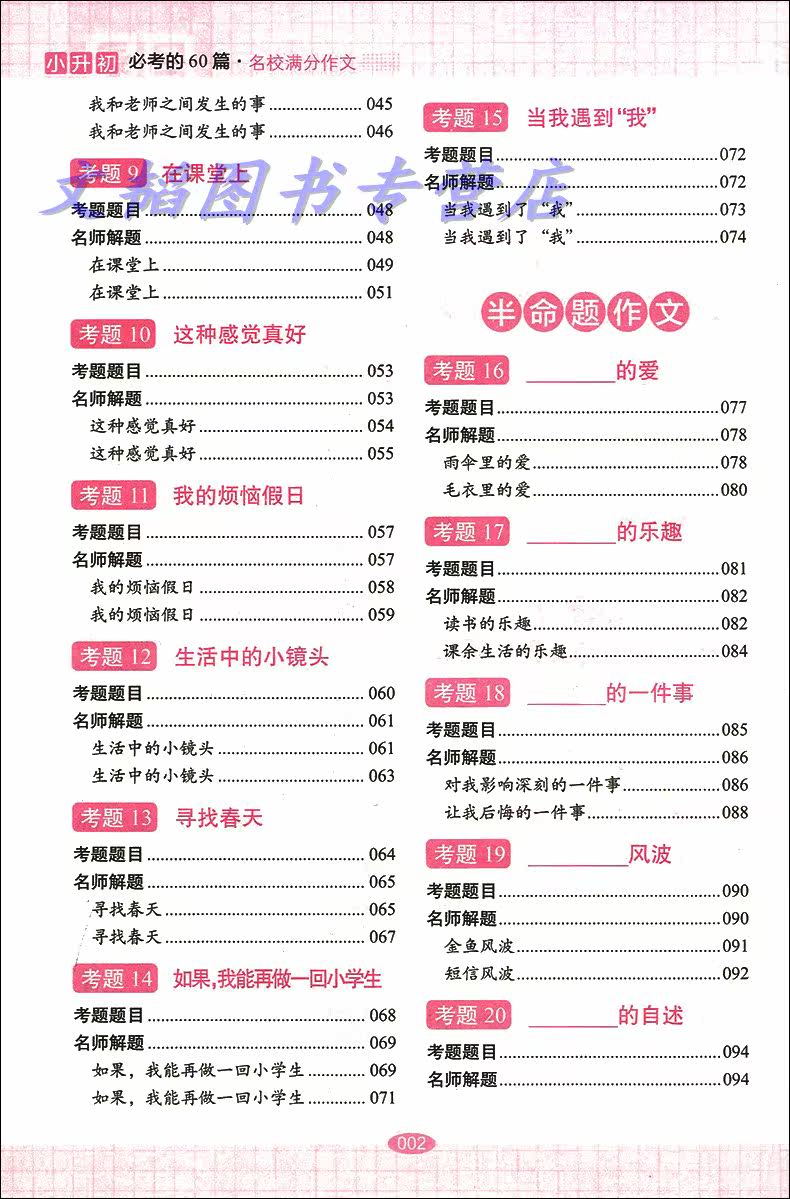 小升初 必考的60篇·名校满分作文
我和老师之间发生的事 045
我和老师之间发生的事 046
考题 9 在课堂上
考题题目 048
名师解题 048
在课堂上 049
在课堂上 051
考题 10 这种感觉真好
考题题目 053
名师解题 053
这种感觉真好 054
这种感觉真好 055
考题 11 我的烦恼假日
考题题目 057
名师解题 057
我的烦恼假日 058
我的烦恼假日 059
考题 12 生活中的小镜头
考题题目 060
名师解题 061
生活中的小镜头 061
生活中的小镜头 063
考题 13 寻找春天
考题题目 064
名师解题 065
寻找春天 065
寻找春天 067
考题 14 如果,我能再做一回小学生
考题题目 068
名师解题 069
如果，我能再做一回小学生 069
如果，我能再做一回小学生 071
考题 15 当我遇到“我”
考题题目 072
名师解题 072
当我遇到了“我” 073
当我遇到了“我” 074
半命题作文
考题 16 ________的爱
考题题目 077
名师解题 078
雨伞里的爱 078
毛衣里的爱 080
考题 17 ________的乐趣
考题题目 081
名师解题 082
读书的乐趣 082
课余生活的乐趣 084
考题 18 ________的一件事
考题题目 085
名师解题 086
对我影响深刻的一件事 086
让我后悔的一件事 088
考题 19 ________风波
考题题目 090
名师解题 090
金鱼风波 091
短信风波 092
考题 20 ________的自述
考题题目 094
名师解题 094
002
文韬图书专营店